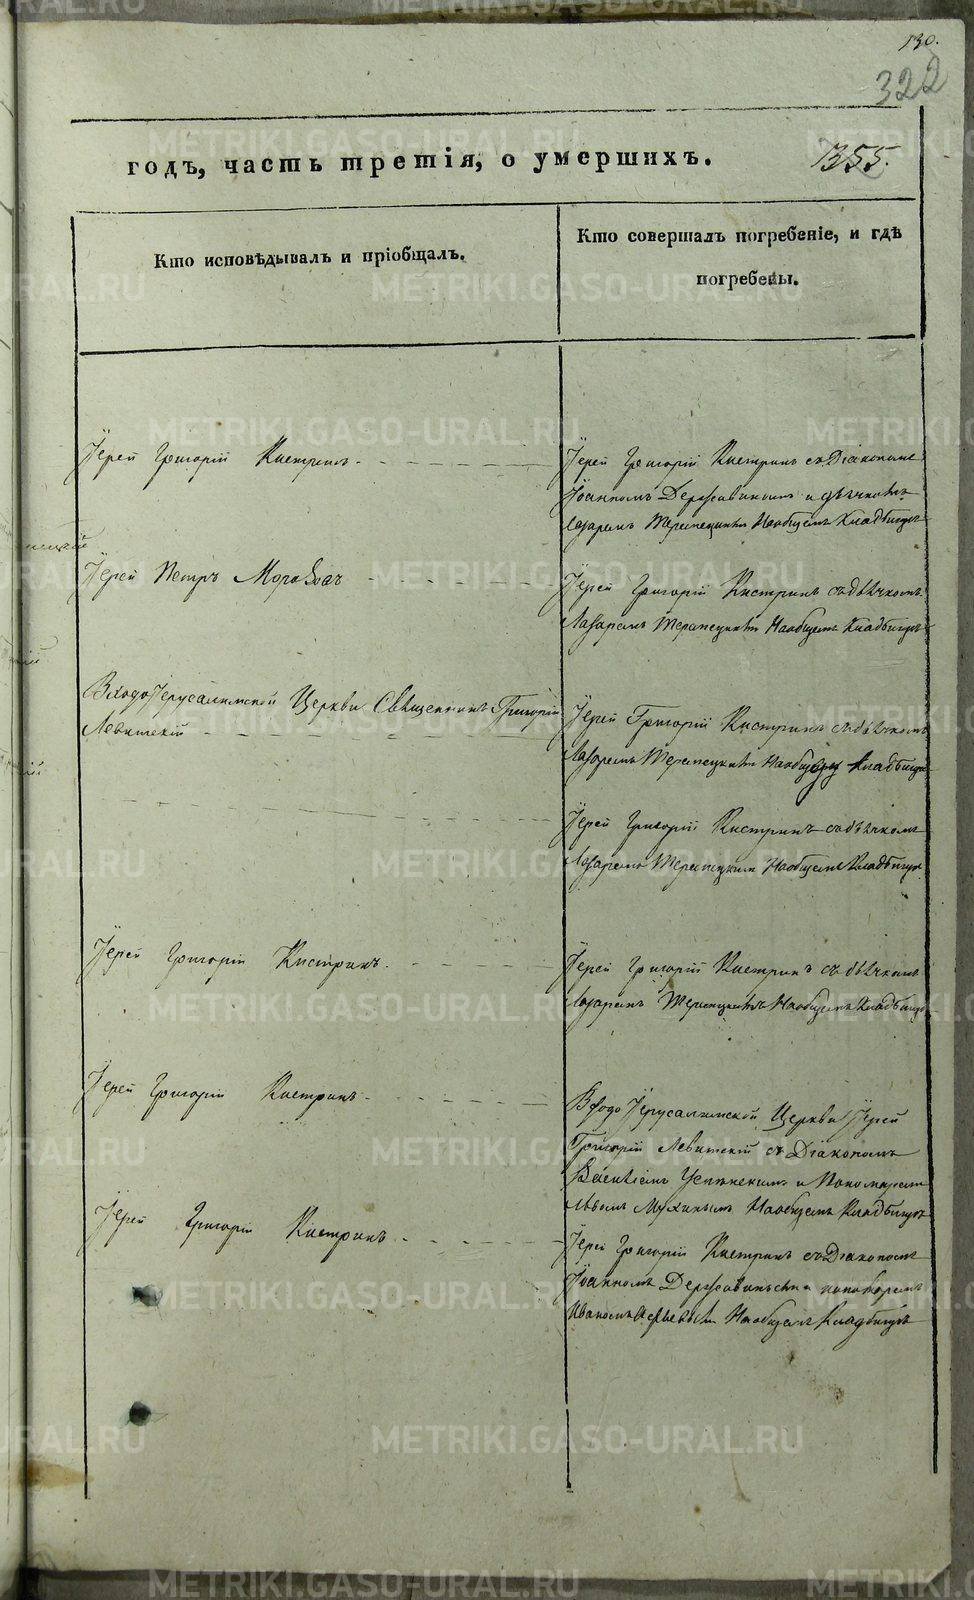 130.
322
годъ, часть третія, о умершихъ. 1355.
Кто исповѣдывалъ и пріобщалъ.
Кто совершалъ погребеніе, и гдѣ
погребены.
Іерей Григорій Кистринъ.
Іерей Григорій Кистринъ съ Діакономъ
Іоанномъ Державинымъ и дьячкомъ
Лазаремъ Терапецкимъ На общемъ Кладбищѣ
Іерей Петръ
Іерей Григорій Кистринъ съ дьячкомъ
Лазаремъ Терапецкимъ На общемъ Кладбищѣ
Входо Іерусалимской Церкви Священникъ Григорій
Левитскій
Іерей Григорій Кистринъ съ дьячкомъ
Лазаремъ Терапецкимъ На общемъ Кладбищѣ
Іерей Григорій Кистринъ съ дьячкомъ
Лазаремъ Терапецкимъ На общемъ Кладбищѣ
Іерей Григорій Кистринъ.
Іерей Григорій Кистринъ съ дьячкомъ
Лазаремъ Терапецкимъ На общемъ Кладбищѣ
Іерей Григорій Кистринъ.
Входо Іерусалимской Церкви Іерей
Григорій Левитскій съ Діакономъ
Успенскимъ и Пономаремъ
Львомъ Мухинымъ На общемъ Кладбищѣ
Іерей Григорій Кистринъ.
Іерей Григорій Кистринъ съ Діакономъ
Іоанномъ Державинымъ и пономаремъ
На общемъ Кладбищѣ
METRIKI.GASO-URAL.RU